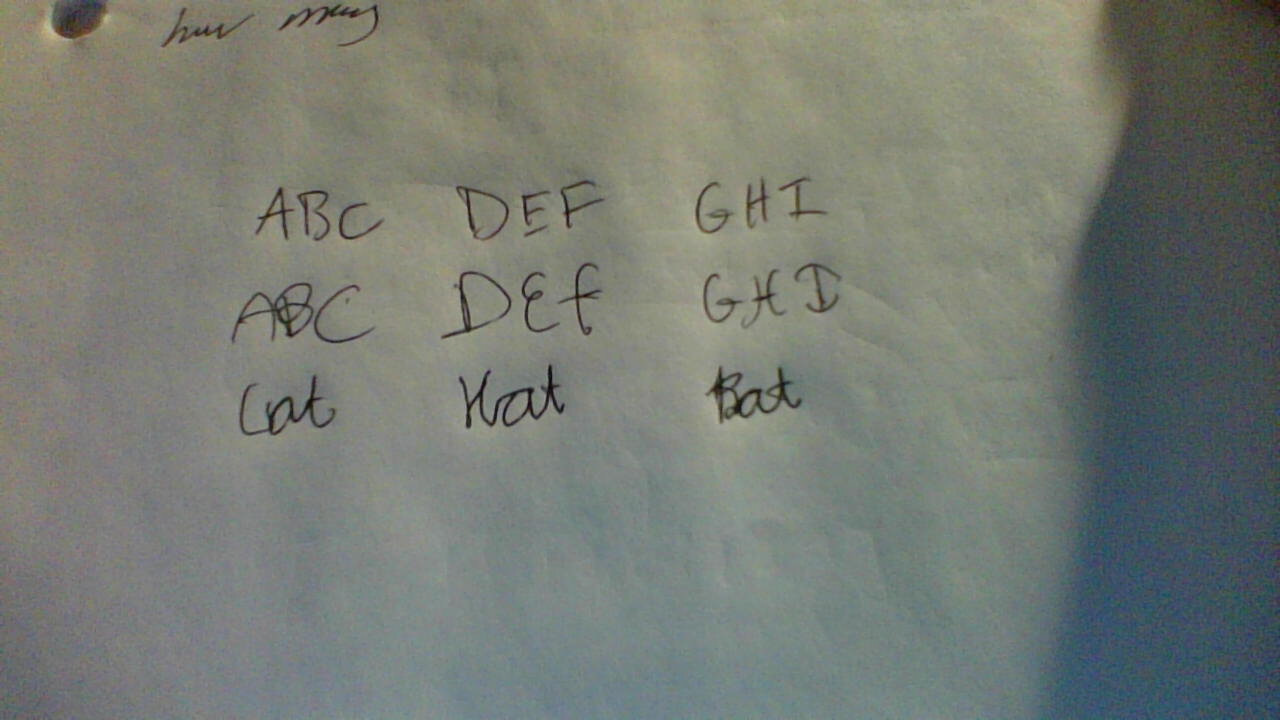 how many
ABC DEF GHI
ABC DEf GHI
Cat Hat Bat